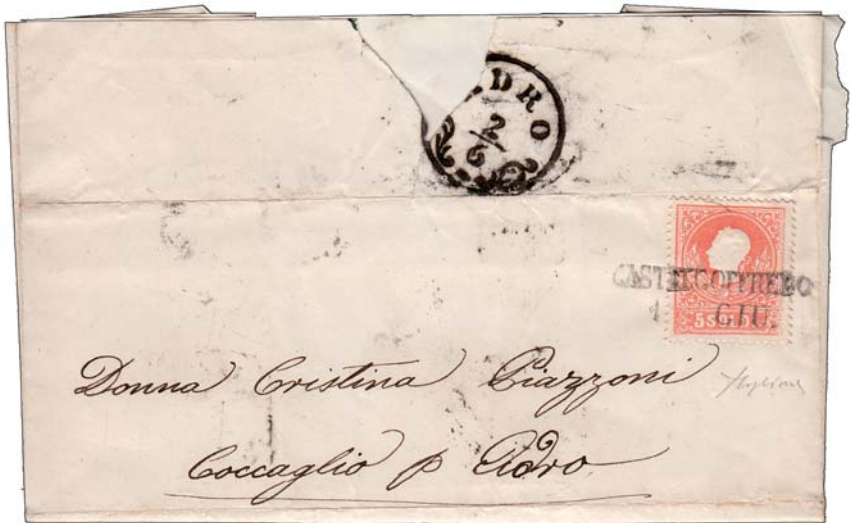 DRO
2/6
CASTELGOFFREDO
1 GIU.
5 SOLDI
Donna Cristina Piazzoni
Coccaglio p Adro